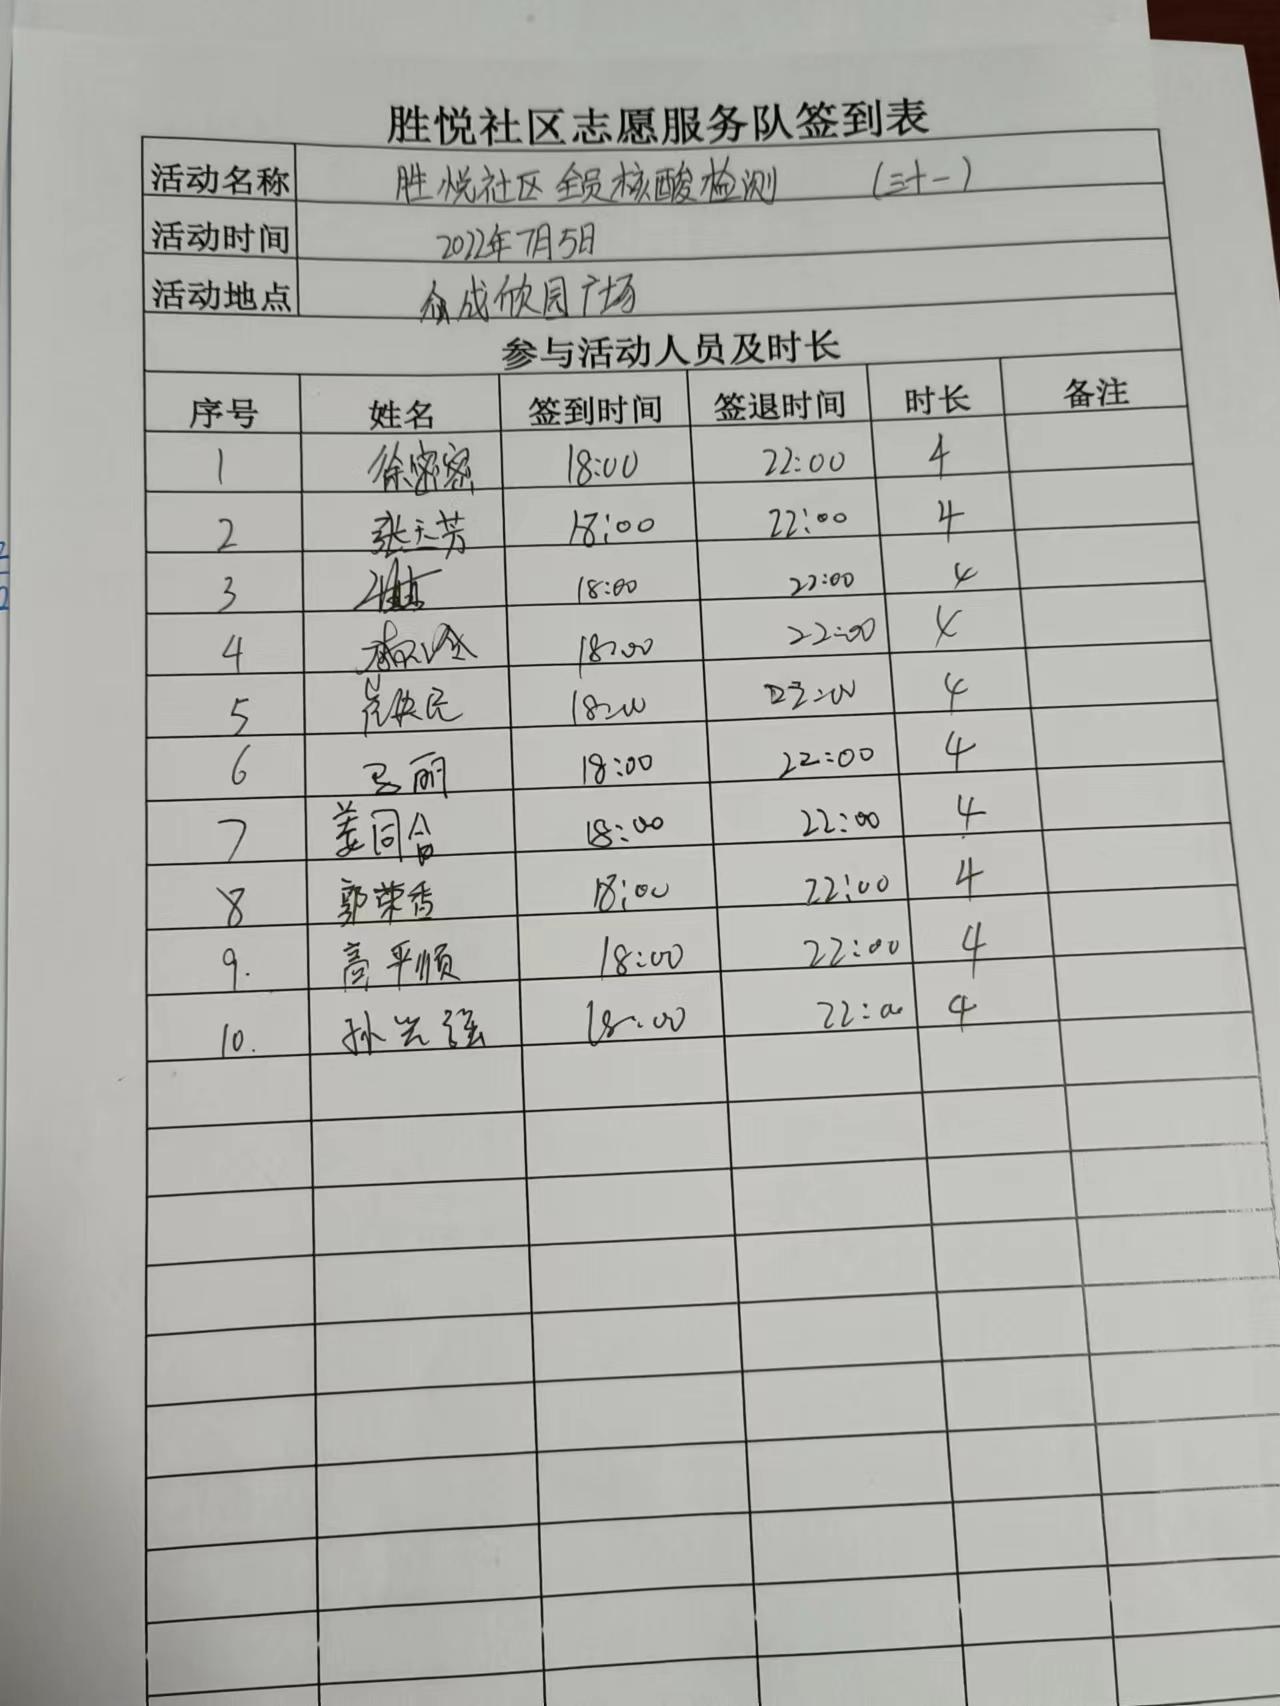 胜悦社区志愿服务队签到表
活动名称 胜悦社区全员核酸检测 (三十一)
活动时间 2022年7月5日
活动地点 众成欣园广场
参与活动人员及时长
序号 姓名 签到时间 签退时间 时长 备注
1 徐密密 18:00 22:00 4
2 张天芳 18:00 22:00 4
3 18:00 22:00 4
4 18:00 22:00 4
5 18:00 22:00 4
6 马丽 18:00 22:00 4
7 姜同合 18:00 22:00 4
8 郭荣香 18:00 22:00 4
9. 高平顺 18:00 22:00 4
10. 孙光强 18:00 22:00 4